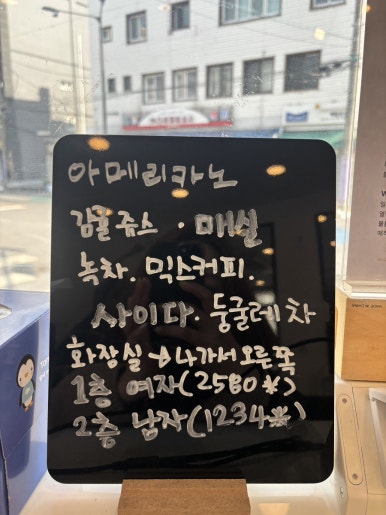 아메리카노
감귤쥬스 · 매실
녹차. 믹스커피.
사이다. 둥굴레차
화장실 → 나가서 오른쪽
1층 여자(2580*)
2층 남자(1234*)